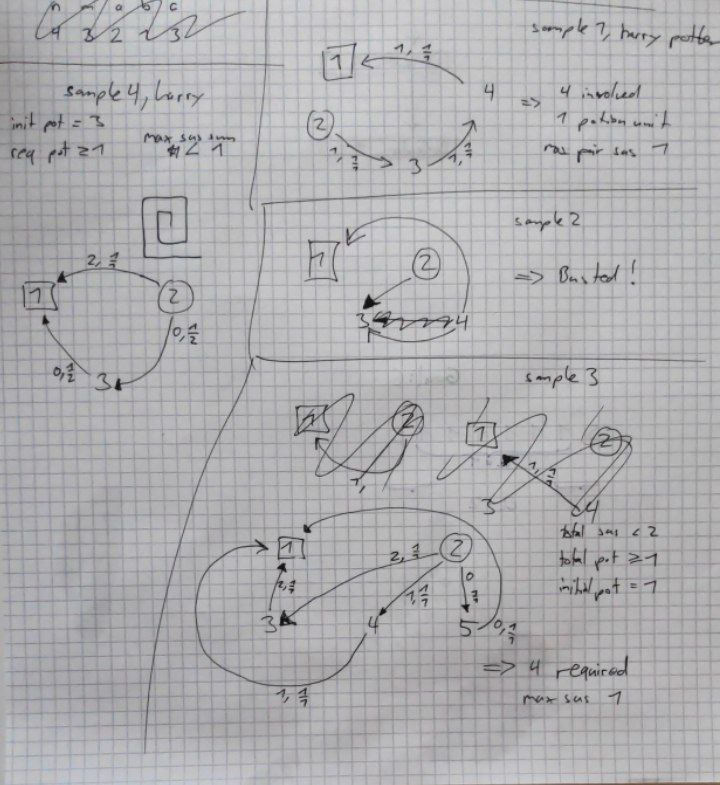 n m a b c
4 3 2 1 3
sample 4, harry
init pot = 3
req pot ≥ 1
max sus sum
< 1
1
2
2, 1/1
0, 1/2
0, 1/2
3
sample 1, harry potter
1
1, 1/1
4
2
1, 1/1
3
1, 1/1
=> 4 involved
1 potion unit
max pair sus 1
sample 2
1
2
=> Busted!
3
4
sample 3
1
2
1,
1
2
1, 1/1
3
4
total sus < 2
total pot ≥ 1
initial pot = 1
1
2
2, 1/1
2, 1/1
1, 1/1
0
3
4
5
0, 1/1
1, 1/1
=> 4 required
max sus 1